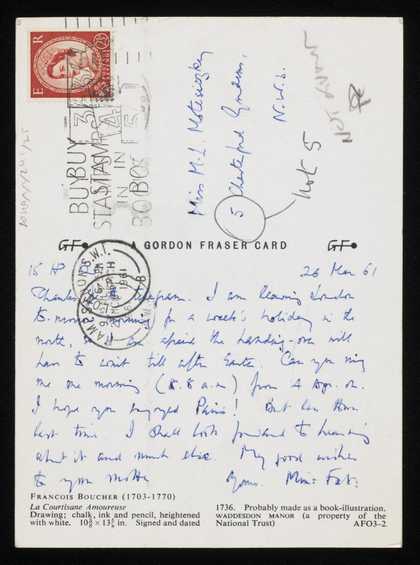 E R
BUY STAMPS IN BOOKS
Miss M. L. Motesiczky
5 Chesterford Gardens
N.W.3.
Not 5
GF• A GORDON FRASER CARD GF•
26 Mar 61
Thank you telegram. I am leaving London
to-morrow morning for a week's holiday in the
north, I am afraid the handing-over will
have to wait till after Easter. Can you ring
me one morning (8.8 a.m) from 4 Apr. on
I hope you enjoyed Paris! But
last time I shall look forward to hearing
about it and much else. My good wishes
to your mother Yours.
FRANCOIS BOUCHER (1703-1770)
La Courtisane Amoureuse
Drawing; chalk, ink and pencil, heightened
with white. 10⅝ × 13⅜ in. Signed and dated
1736. Probably made as a book-illustration.
WADDESDON MANOR (a property of the
National Trust) AFO3-2.